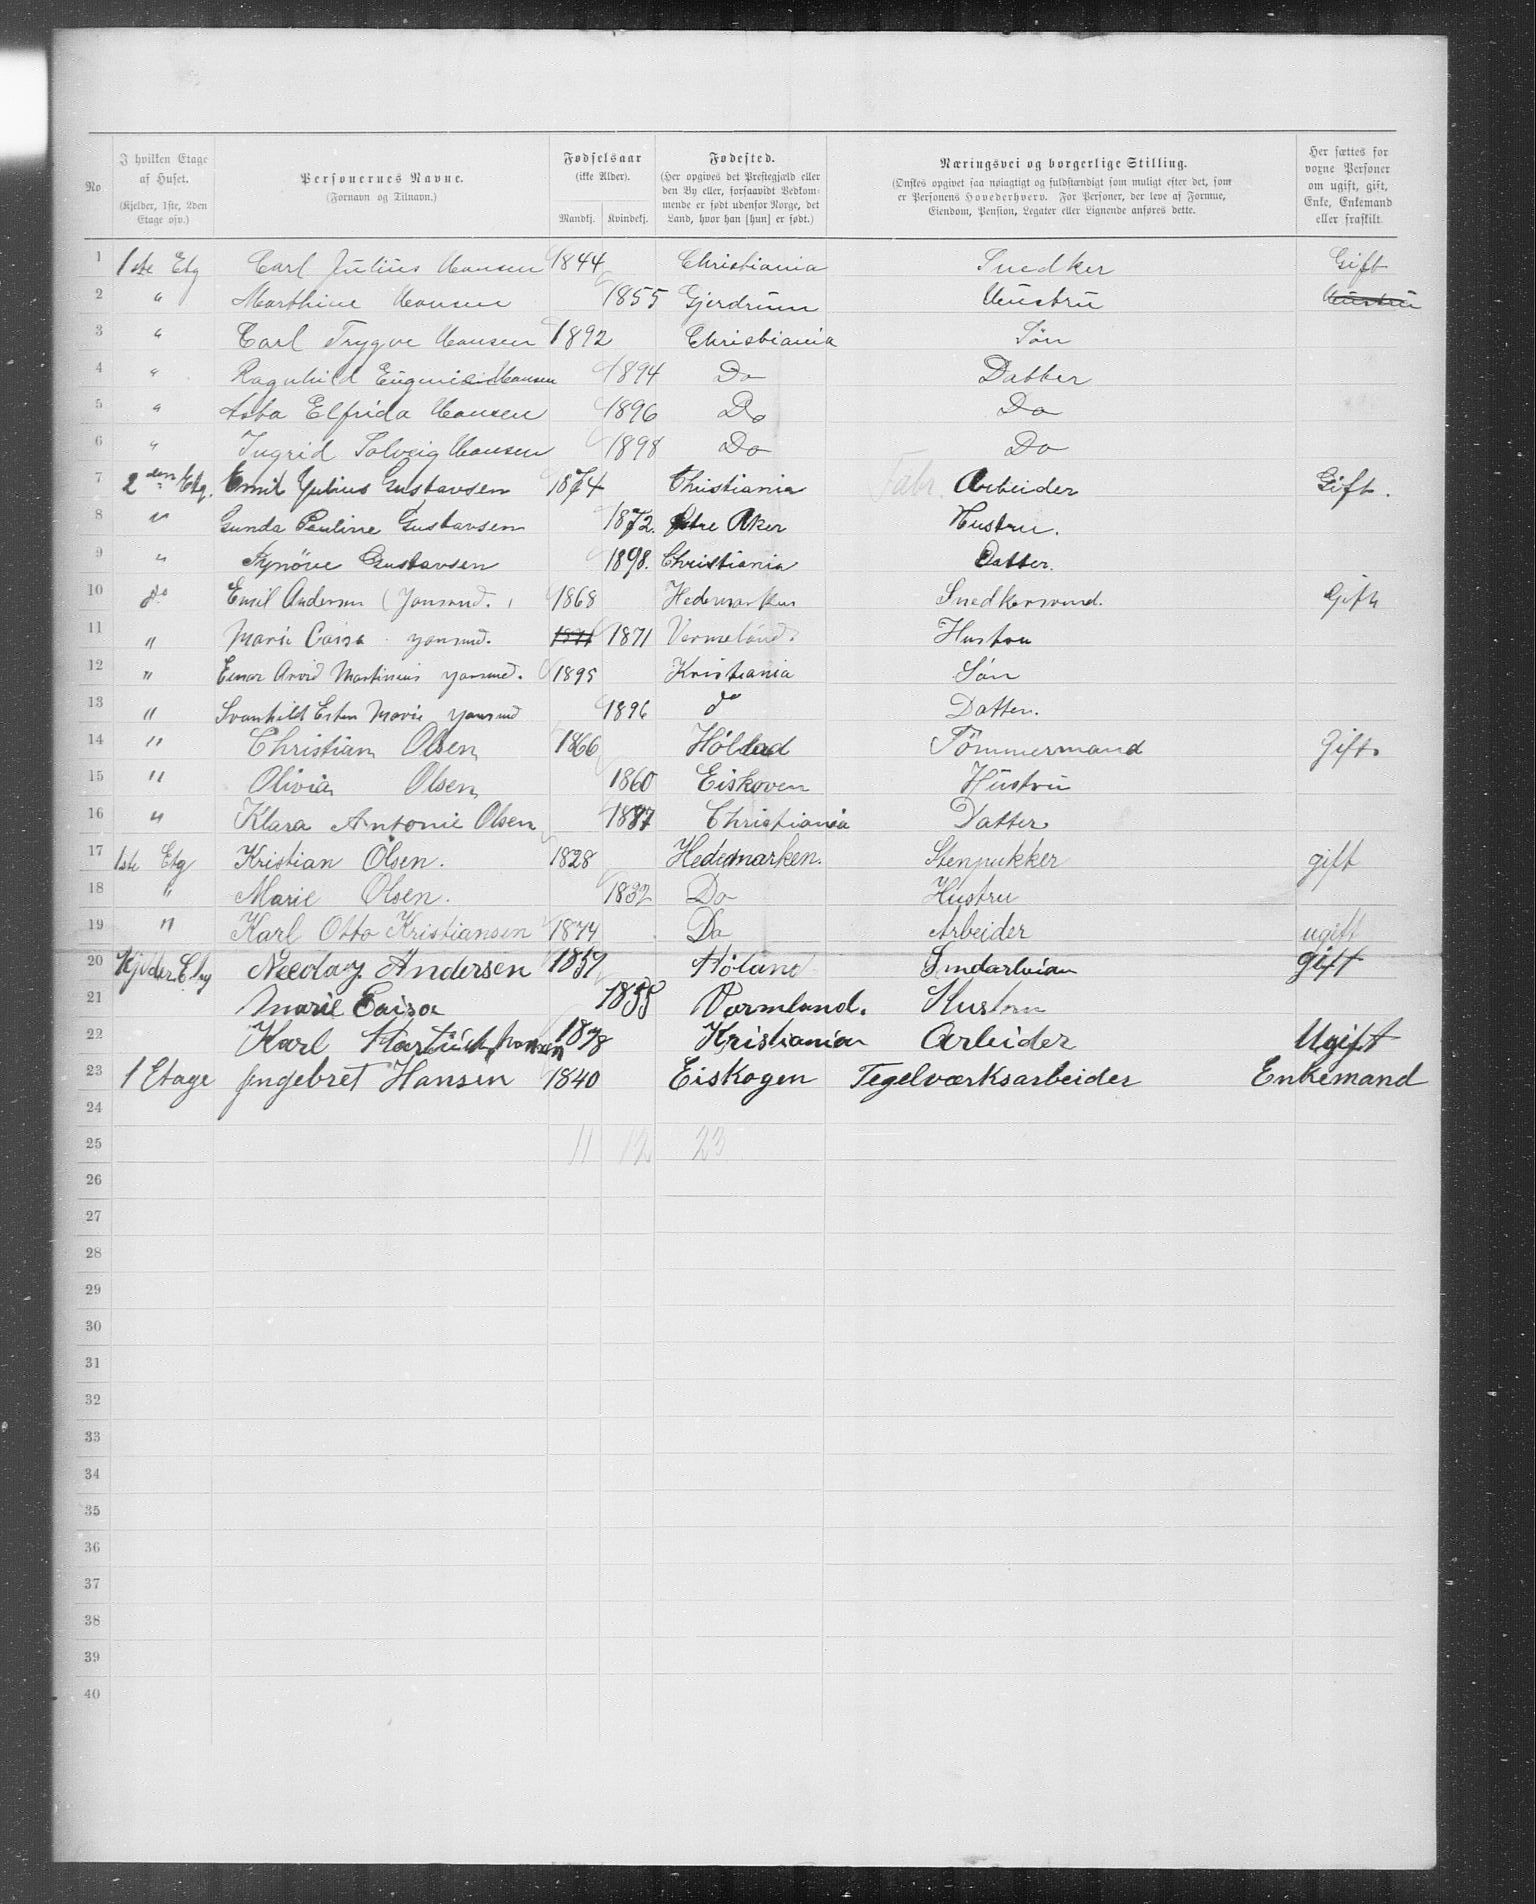 No
I hvilken Etage af Huset.
(Kjelder, 1ste, 2den Etage osv.)
Personernes Navne.
(Fornavn og Tilnavn.)
Fødselsaar
(ikke Alder).
Mandkj. Kvindekj.
Fødested.
(Her opgives det Prestegjæld eller den By eller, forsaavidt Vedkommende er født udenfor Norge, det Land, hvor han [hun] er født.)
Næringsvei og borgerlige Stilling.
(Ønskes opgivet saa nøiagtigt og fuldstændigt som muligt efter det, som er Personens Hovederhverv. For Personer, der leve af Formue, Eiendom, Pension, Legater eller Lignende anføres dette.
Her sættes for voxne Personer om ugift, gift, Enke, Enkemand eller fraskilt.
1 1ste Etg Carl Julius Hansen 1844 Christiania Snedker Gift
2 " Marthine Hansen 1855 Gjerdrum Hustru Hustru
3 " Carl Trygve Hansen 1892 Christiania Søn
4 " Ragnhild Eugenie Hansen 1894 Do Datter
5 " Asta Elfrida Hansen 1896 Do Do
6 " Ingrid Solveig Hansen 1898 Do Do
7 2den Etg. Emil Julius Gustavsen 1874 Christiania Fabr. Arbeider Gift.
8 " Gunda Pauline Gustavsen 1872. Østre Aker Hustru.
9 " Synøve Gustavsen 1898. Christiania Datter.
10 do Emil Andersen (Jonsrud.) 1868 Hedemarken Snedkersvend. Gift
11 " Marie Caisa Jonsrud. 1871 1871 Vermeland. Hustru
12 " Einar Arvid Martinius Jonsrud. 1895 Kristiania Søn
13 " Svanhild Ester Marie Jonsrud 1896 do Datter.
14 " Christian Olsen 1866 Hølland Tömmermand Gift.
15 " Olivia Olsen 1860 Eiskoven Hustru
16 " Klara Antonie Olsen 1887 Christiania Datter
17 1ste Etg Kristian Olsen. 1828 Hedemarken. Stenpukker gift
18 " Marie Olsen. 1832 Do Hustru
19 " Karl Otto Kristiansen 1874 Do Arbeider ugift
20 Kjelder Etg Nicolay Andersen 1857 Høland gift
21 Marie Caisa 1855 Vermland. Hustru
22 Karl 1878 Kristiania Arbeider Ugift
23 1 Etage Ingebret Hansen 1840 Eiskogen Tegelværksarbeider Enkemand
24
25 11 12 23
26
27
28
29
30
31
32
33
34
35
36
37
38
39
40